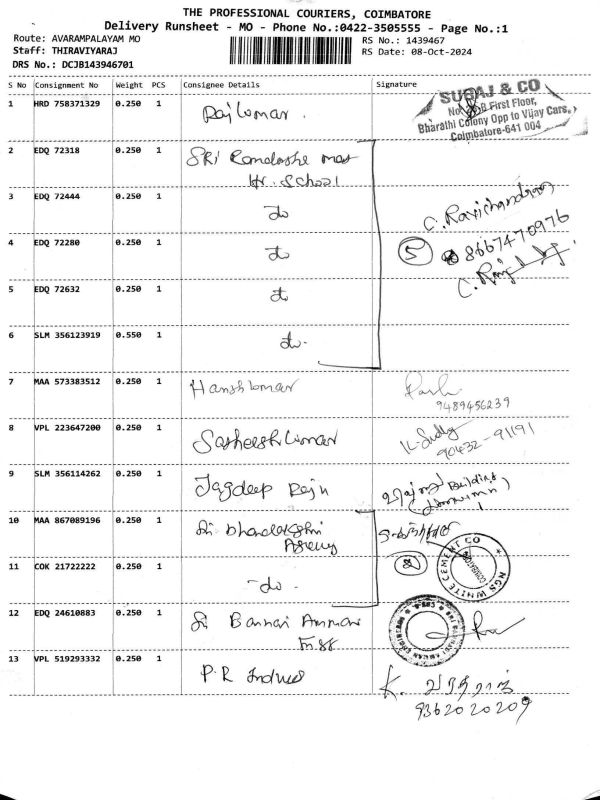 THE PROFESSIONAL COURIERS, COIMBATORE
Delivery Runsheet - MO - Phone No.:0422-3505555 - Page No.:1
Route: AVARAMPALAYAM MO
RS No.: 1439467
Staff: THIRAVIYARAJ
RS Date: 08-Oct-2024
DRS No.: DCJB143946701
S No Consignment No Weight PCS Consignee Details Signature
1 HRD 758371329 0.250 1 Rajkumar.
SURAJ & CO
First Floor,
Bharathi Colony Opp to Vijay Cars,
Coimbatore-641 004
2 EDQ 72318 0.250 1 SRI Ramalashe mat
Hr. School
3 EDQ 72444 0.250 1 do
C. Ravichandran
4 EDQ 72280 0.250 1 do
5 8667470976
5 EDQ 72632 0.250 1 do
6 SLM 356123919 0.550 1 do.
7 MAA 573383512 0.250 1 Harishkumar
9489456239
8 VPL 223647200 0.250 1 Satheeshkumar
90432-91191
9 SLM 356114262 0.250 1 Jagdeep Raju
Building
10 MAA 867089196 0.250 1 Sri
Agency
11 COK 21722222 0.250 1 -do.
2
NGS WHITE CEMENT CO
COIMBATORE
12 EDQ 24610883 0.250 1 Sri Bannari Amman
13 VPL 519293332 0.250 1 P.R
K.
9362020209